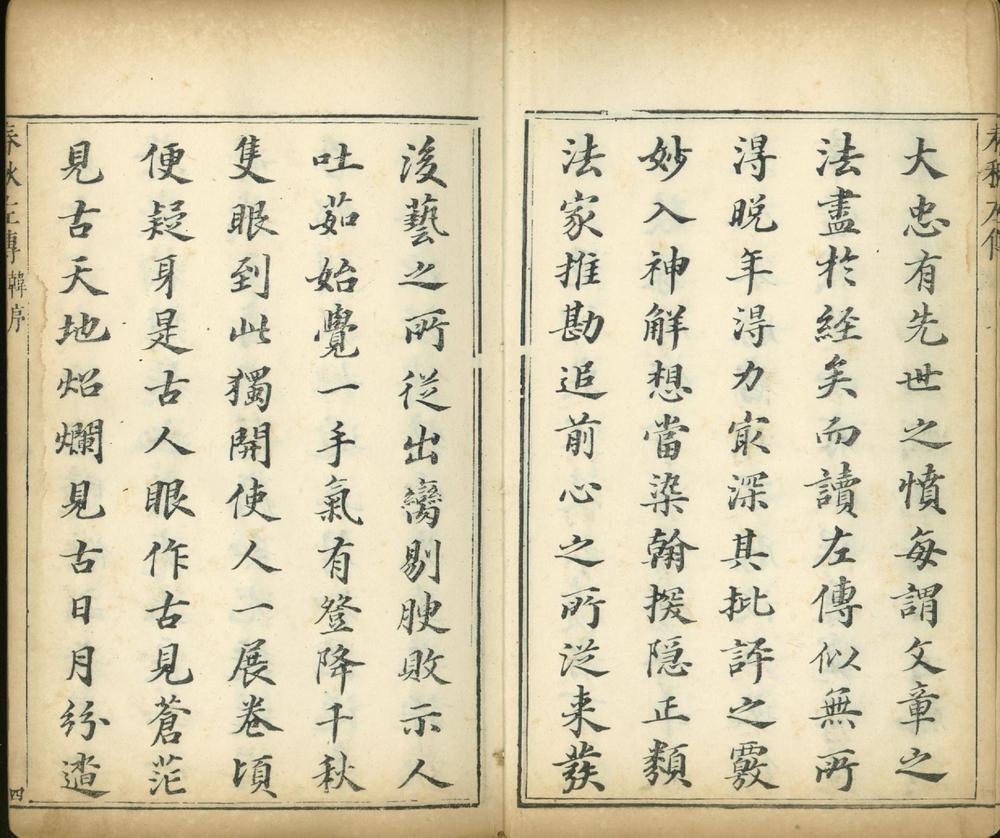 大忠有先世之憤每謂文章之
法盡於経矣而讀左傳似無所
淂晚年淂力㝡深其批評之覈
妙入神解想當染翰揆隐正類
法家推勘追前心之所从来發
後藝之所從出臠剔腴敗示人
吐茹始覺一手氣有登降千秋
隻眼到此獨開使人一展卷頃
便疑身是古人眼作古見蒼茫
見古天地炤爛見古日月紛遝
春秋左傳 韓序
四